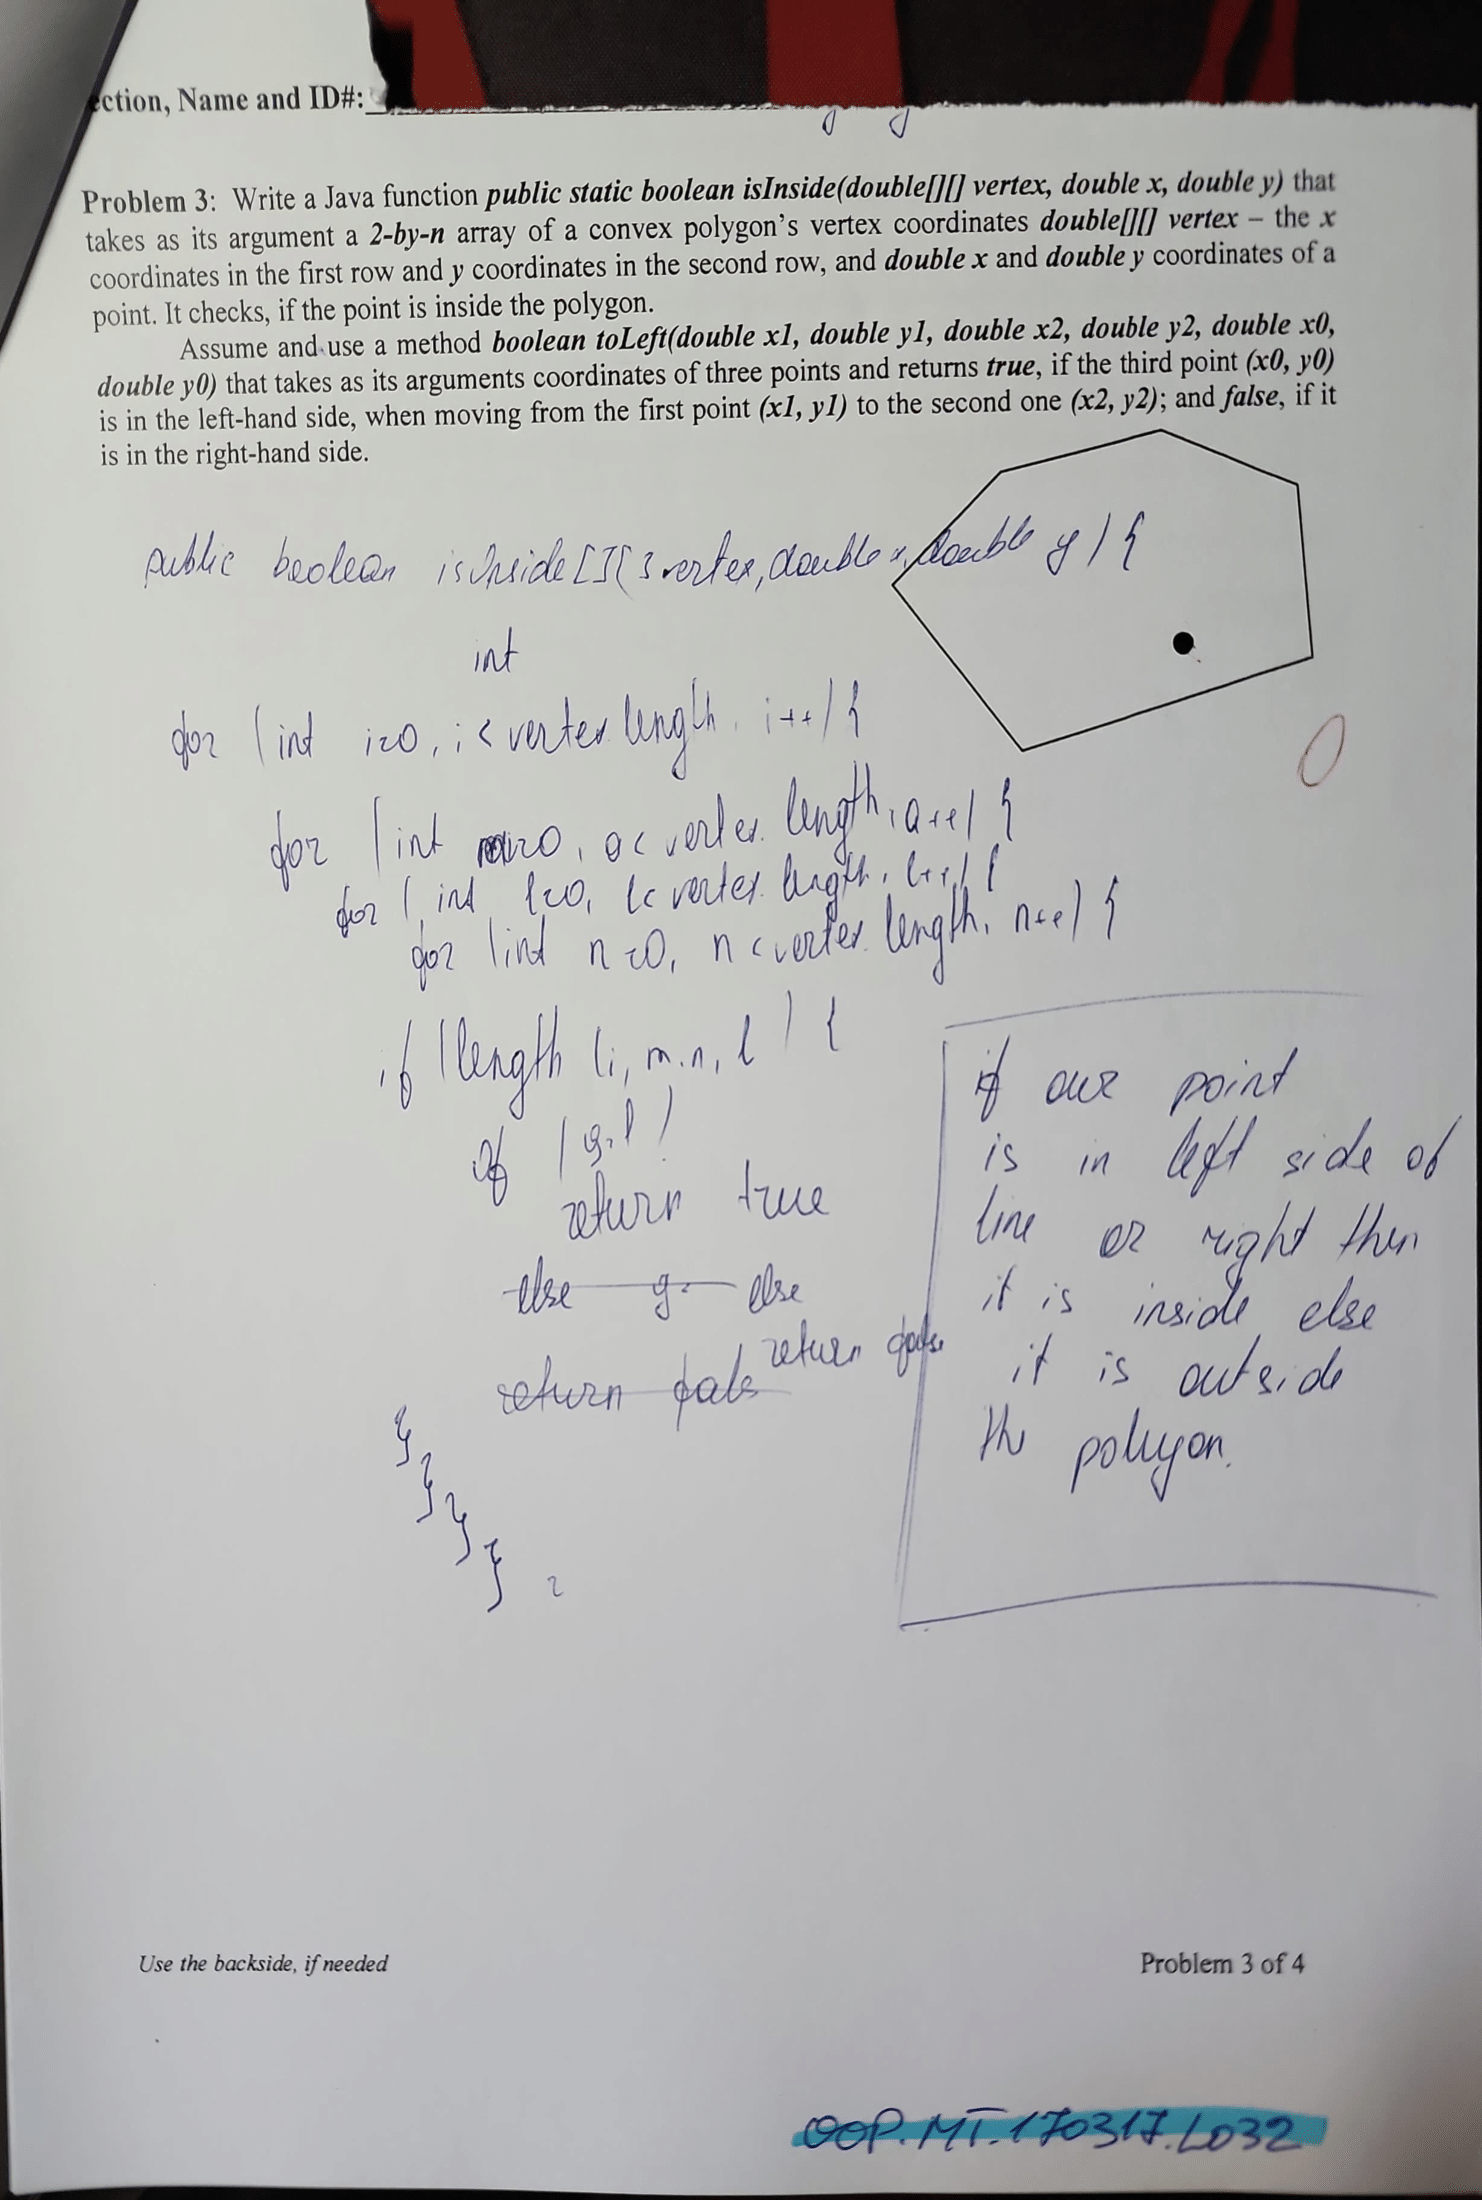 ection, Name and ID#:
Problem 3: Write a Java function public static boolean isInside(double[][] vertex, double x, double y) that
takes as its argument a 2-by-n array of a convex polygon's vertex coordinates double[][] vertex – the x
coordinates in the first row and y coordinates in the second row, and double x and double y coordinates of a
point. It checks, if the point is inside the polygon.
Assume and use a method boolean toLeft(double x1, double y1, double x2, double y2, double x0,
double y0) that takes as its arguments coordinates of three points and returns true, if the third point (x0, y0)
is in the left-hand side, when moving from the first point (x1, y1) to the second one (x2, y2); and false, if it
is in the right-hand side.
public boolean isInside [][] vertex, double x, double y ) {
int
for ( int i=0, i < vertex length, i++) {
0
for ( int =0, a < vertex. length, a++) {
for ( int l=0, l< vertex. length, l++) {
for (int n=0, n < vertex. length, n++) {
if (length (i, m.n, l ) {
if ( g.l )
return true
else g. else
return false
return fals
}
}
}
}
if our point
is in left side of
line or right then
it is inside else
it is outside
the polygon.
Use the backside, if needed
Problem 3 of 4
OOP.MT.170317.L032